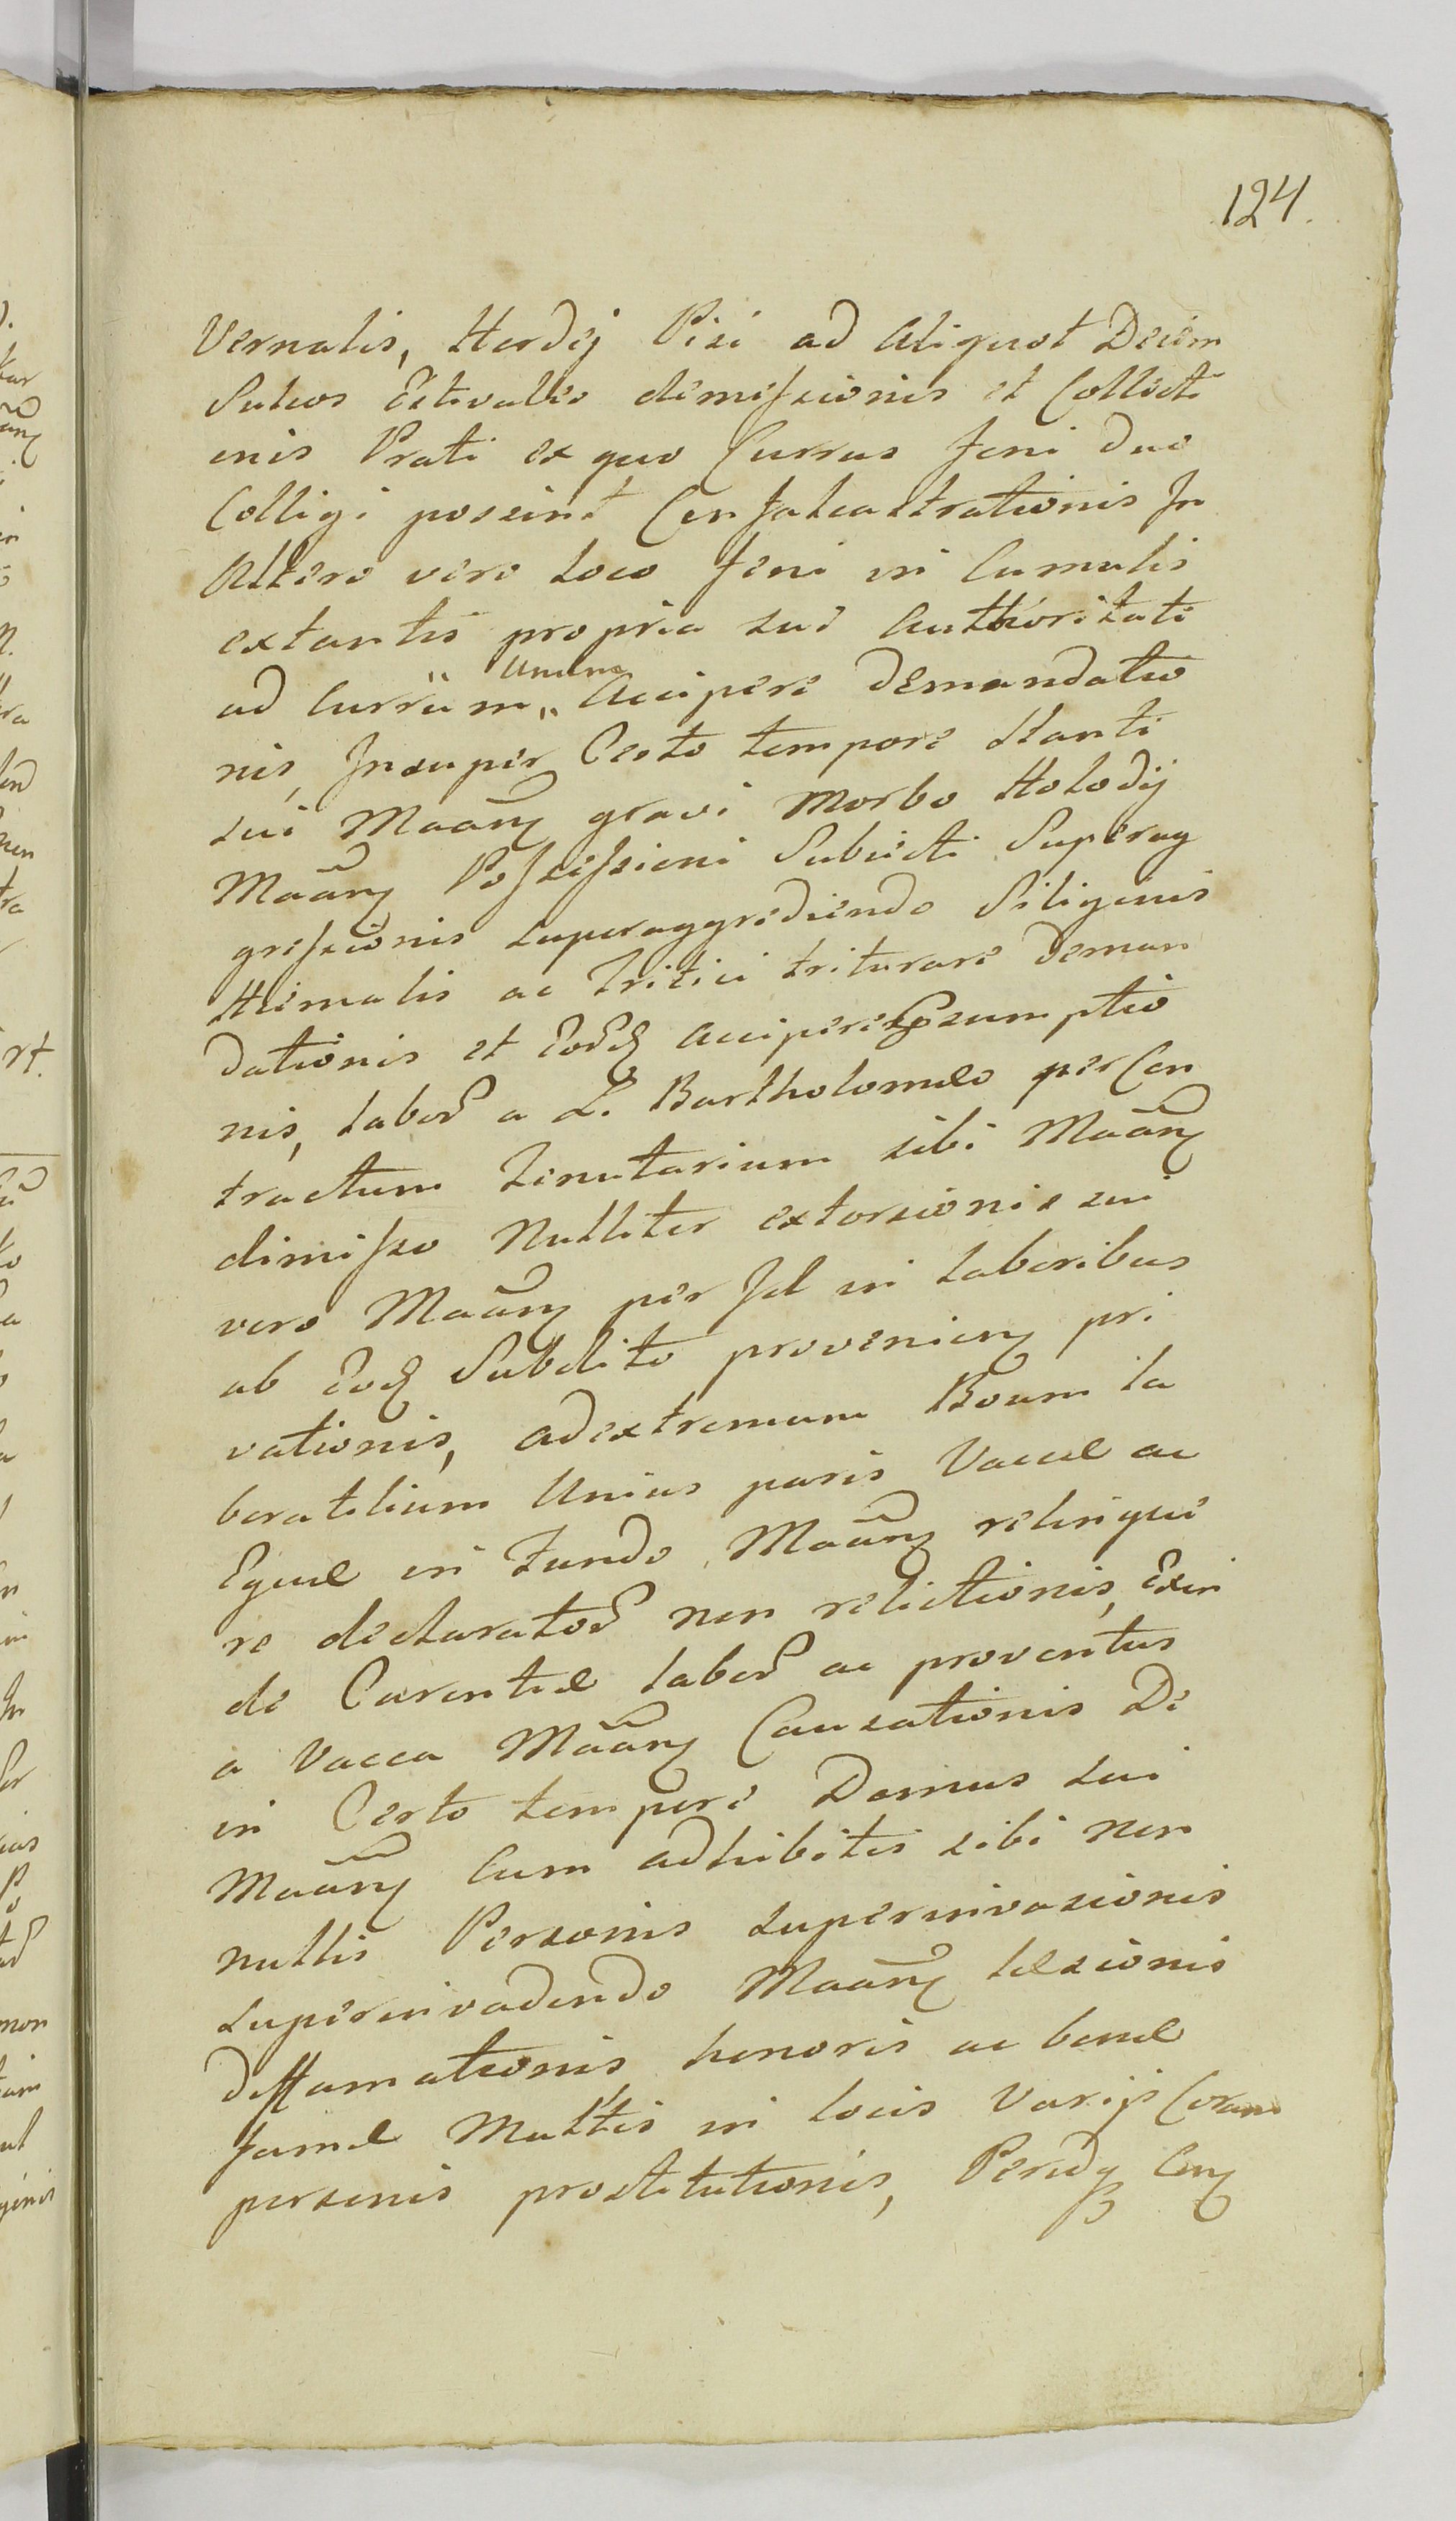 124.
Vernalis, Hordej Pisi ad Aliquot Decem
Sulcos Estivales demiſsionis et Collecti
onis Prati ex quo Currus feni duo
Colligi possint Confalcastrationis In
Altero vero loco feni in Cumulis
extantis propria sui Authoritate
ad Currum Unum Accipere Demandatio
nis, Insuper Certo tempore Stanti
sui Maãnꝫ gravi Morbo Holodij
Maãnꝫ Poſseſsioni Subiecti Superag
greſsionis superaggrediendo Siliginis
Hiemalis ac Tritici triturare Deman
dationis et Eorꝫ accipere Gsumptio
nis, labor a L. Bartholomeo per Con
tractum Tenutarium sibi Maãnꝫ
dimiſso Nulliter extorsionis sui
vero Maãnꝫ per Id in laboribus
ab Eodꝫ Subdito provenienꝫ pri
vationis, ad extremum Boum la
boratilium Unius paris Vaccæ ac
Equæ in Fundo Maãnꝫ relinque
re declarator non relictionis, Exin
de Carentiæ labor ac proventus
a Vacca Maãnꝫ Causationis De
in Certo tempore Domus sui
Maãnꝫ Cum adhibitis sibi non
nullis Personis superinvasionis
superinvadendo Maãnꝫ læsionis
diffamationis honoris ac bonæ
famæ Multis in locis Varijs Coram
personis prostitutionis,